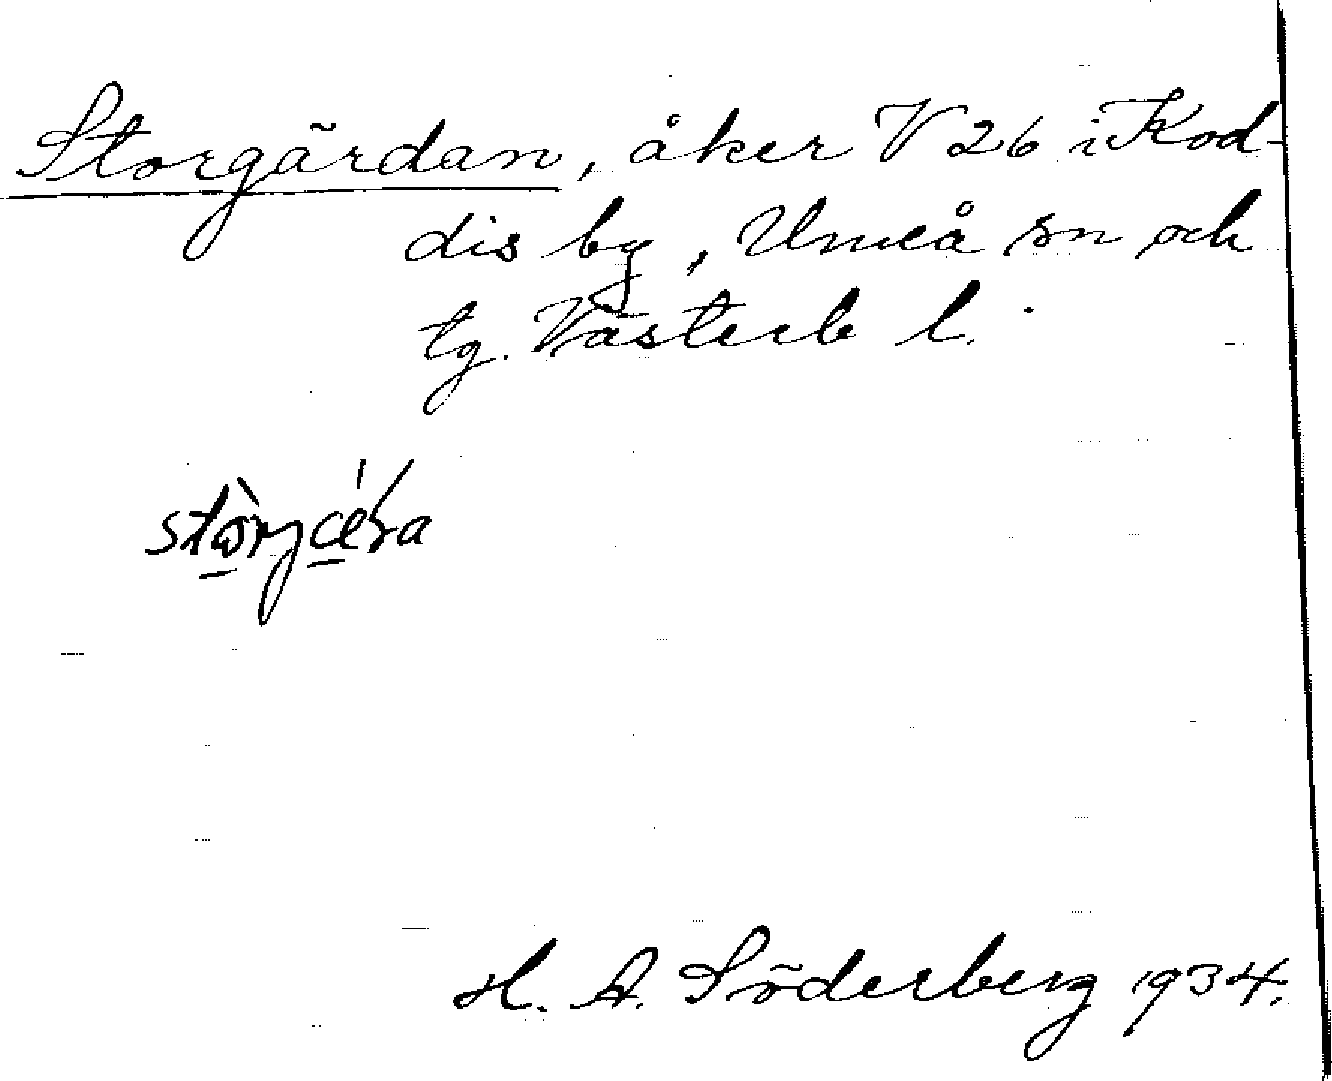 Storgärdan, åker V 26 i Kod-
dis by, Umeå sn och
tg. Västerb l.
H. A. Söderberg 1934.